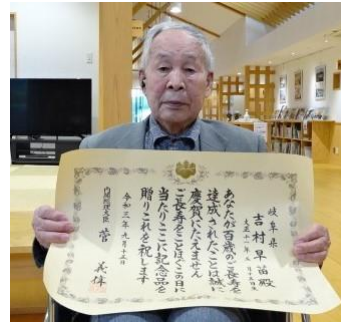 岐阜県
吉村早苗殿
大正十一年
あなたが百歳のご長寿を
達成されたことは誠に
慶賀にたえません
ご長寿をことほぐこの日に
当たりここに記念品を
贈りこれを祝します
令和三年九月十五日
内閣総理大臣 菅 義偉